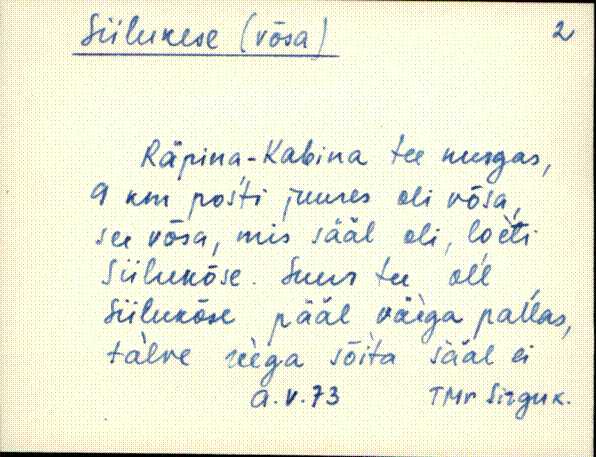 Siilukese (võsa)
2
Räpina-Kabina tee nurgas,
9 km pos'ti juures oli võsa,
see võsa, mis sääl oli, loèti
Siilukõse. Suur tee ol'l
Siilukõse pääl väèga pal'las,
talve rèèga sõita sääl ei
a. v. 73 TMr Sirguk.